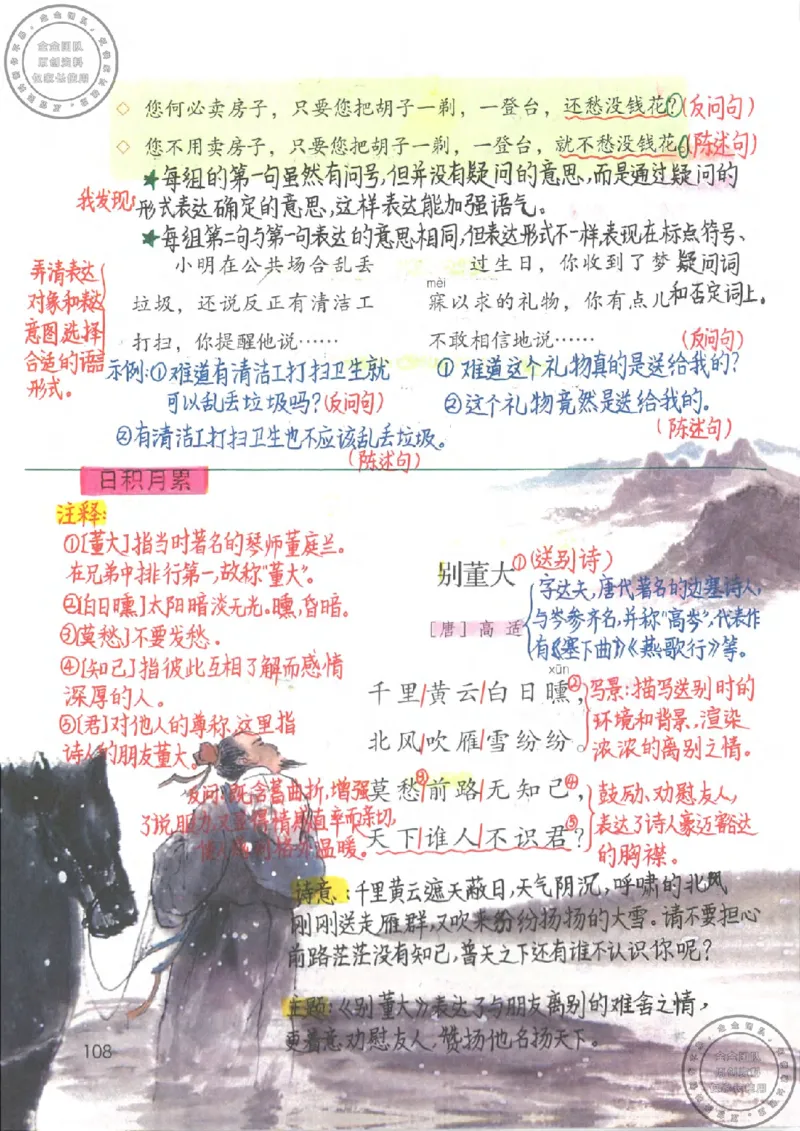 ◇ 您何必卖房子，只要您把胡子一剃，一登台，还愁没钱花？(反问句)
◇ 您不用卖房子，只要您把胡子一剃，一登台，就不愁没钱花。(陈述句)
★每组的第一句虽然有问号，但并没有疑问的意思，而是通过疑问的
我发现：形式表达确定的意思，这样表达能加强语气。
★每组第二句与第一句表达的意思相同，但表达形式不一样表现在标点符号、
疑问词
和否定词上。
弄清表达
对象和表达
意图，选择
合适的语言
形式。
小明在公共场合乱丢
垃圾，还说反正有清洁工
打扫，你提醒他说……
示例：①难道有清洁工打扫卫生就
可以乱丢垃圾吗？(反问句)
②有清洁工打扫卫生也不应该乱丢垃圾。
(陈述句)
过生日，你收到了梦
mèi
寐以求的礼物，你有点儿
不敢相信地说……
(反问句)
①难道这个礼物真的是送给我的？
②这个礼物竟然是送给我的。
(陈述句)
日积月累
注释：
①[董大]指当时著名的琴师董庭兰。
在兄弟中排行第一，故称"董大"。
②[白日曛]太阳暗淡无光。曛，昏暗。
③[莫愁]不要发愁。
④[知己]指彼此互相了解而感情
深厚的人。
⑤[君]对他人的尊称，这里指
诗人的朋友董大。
别董大①(送别诗)
[唐] 高适
字达夫，唐代著名的边塞诗人，
与岑参齐名，并称"高岑"，代表作
有《塞下曲》《燕歌行》等。
xūn
千里/黄云/白日曛②，
北风/吹雁/雪纷纷。
写景：描写送别时的
环境和背景，渲染
浓浓的离别之情。
莫愁③/前路/无知己④，
天下/谁人/不识君⑤？
鼓励、劝慰友人，
表达了诗人豪迈豁达
的胸襟。
反问：既含蓄曲折，增强
了说服力，又显得情感直率而亲切，
格外温暖。
诗意：千里黄云遮天蔽日，天气阴沉，呼啸的北风
刚刚送走雁群，又吹来纷纷扬扬的大雪。请不要担心
前路茫茫没有知己，普天之下还有谁不认识你呢？
主题：《别董大》表达了与朋友离别的难舍之情，
更着意劝慰友人，赞扬他名扬天下。
108